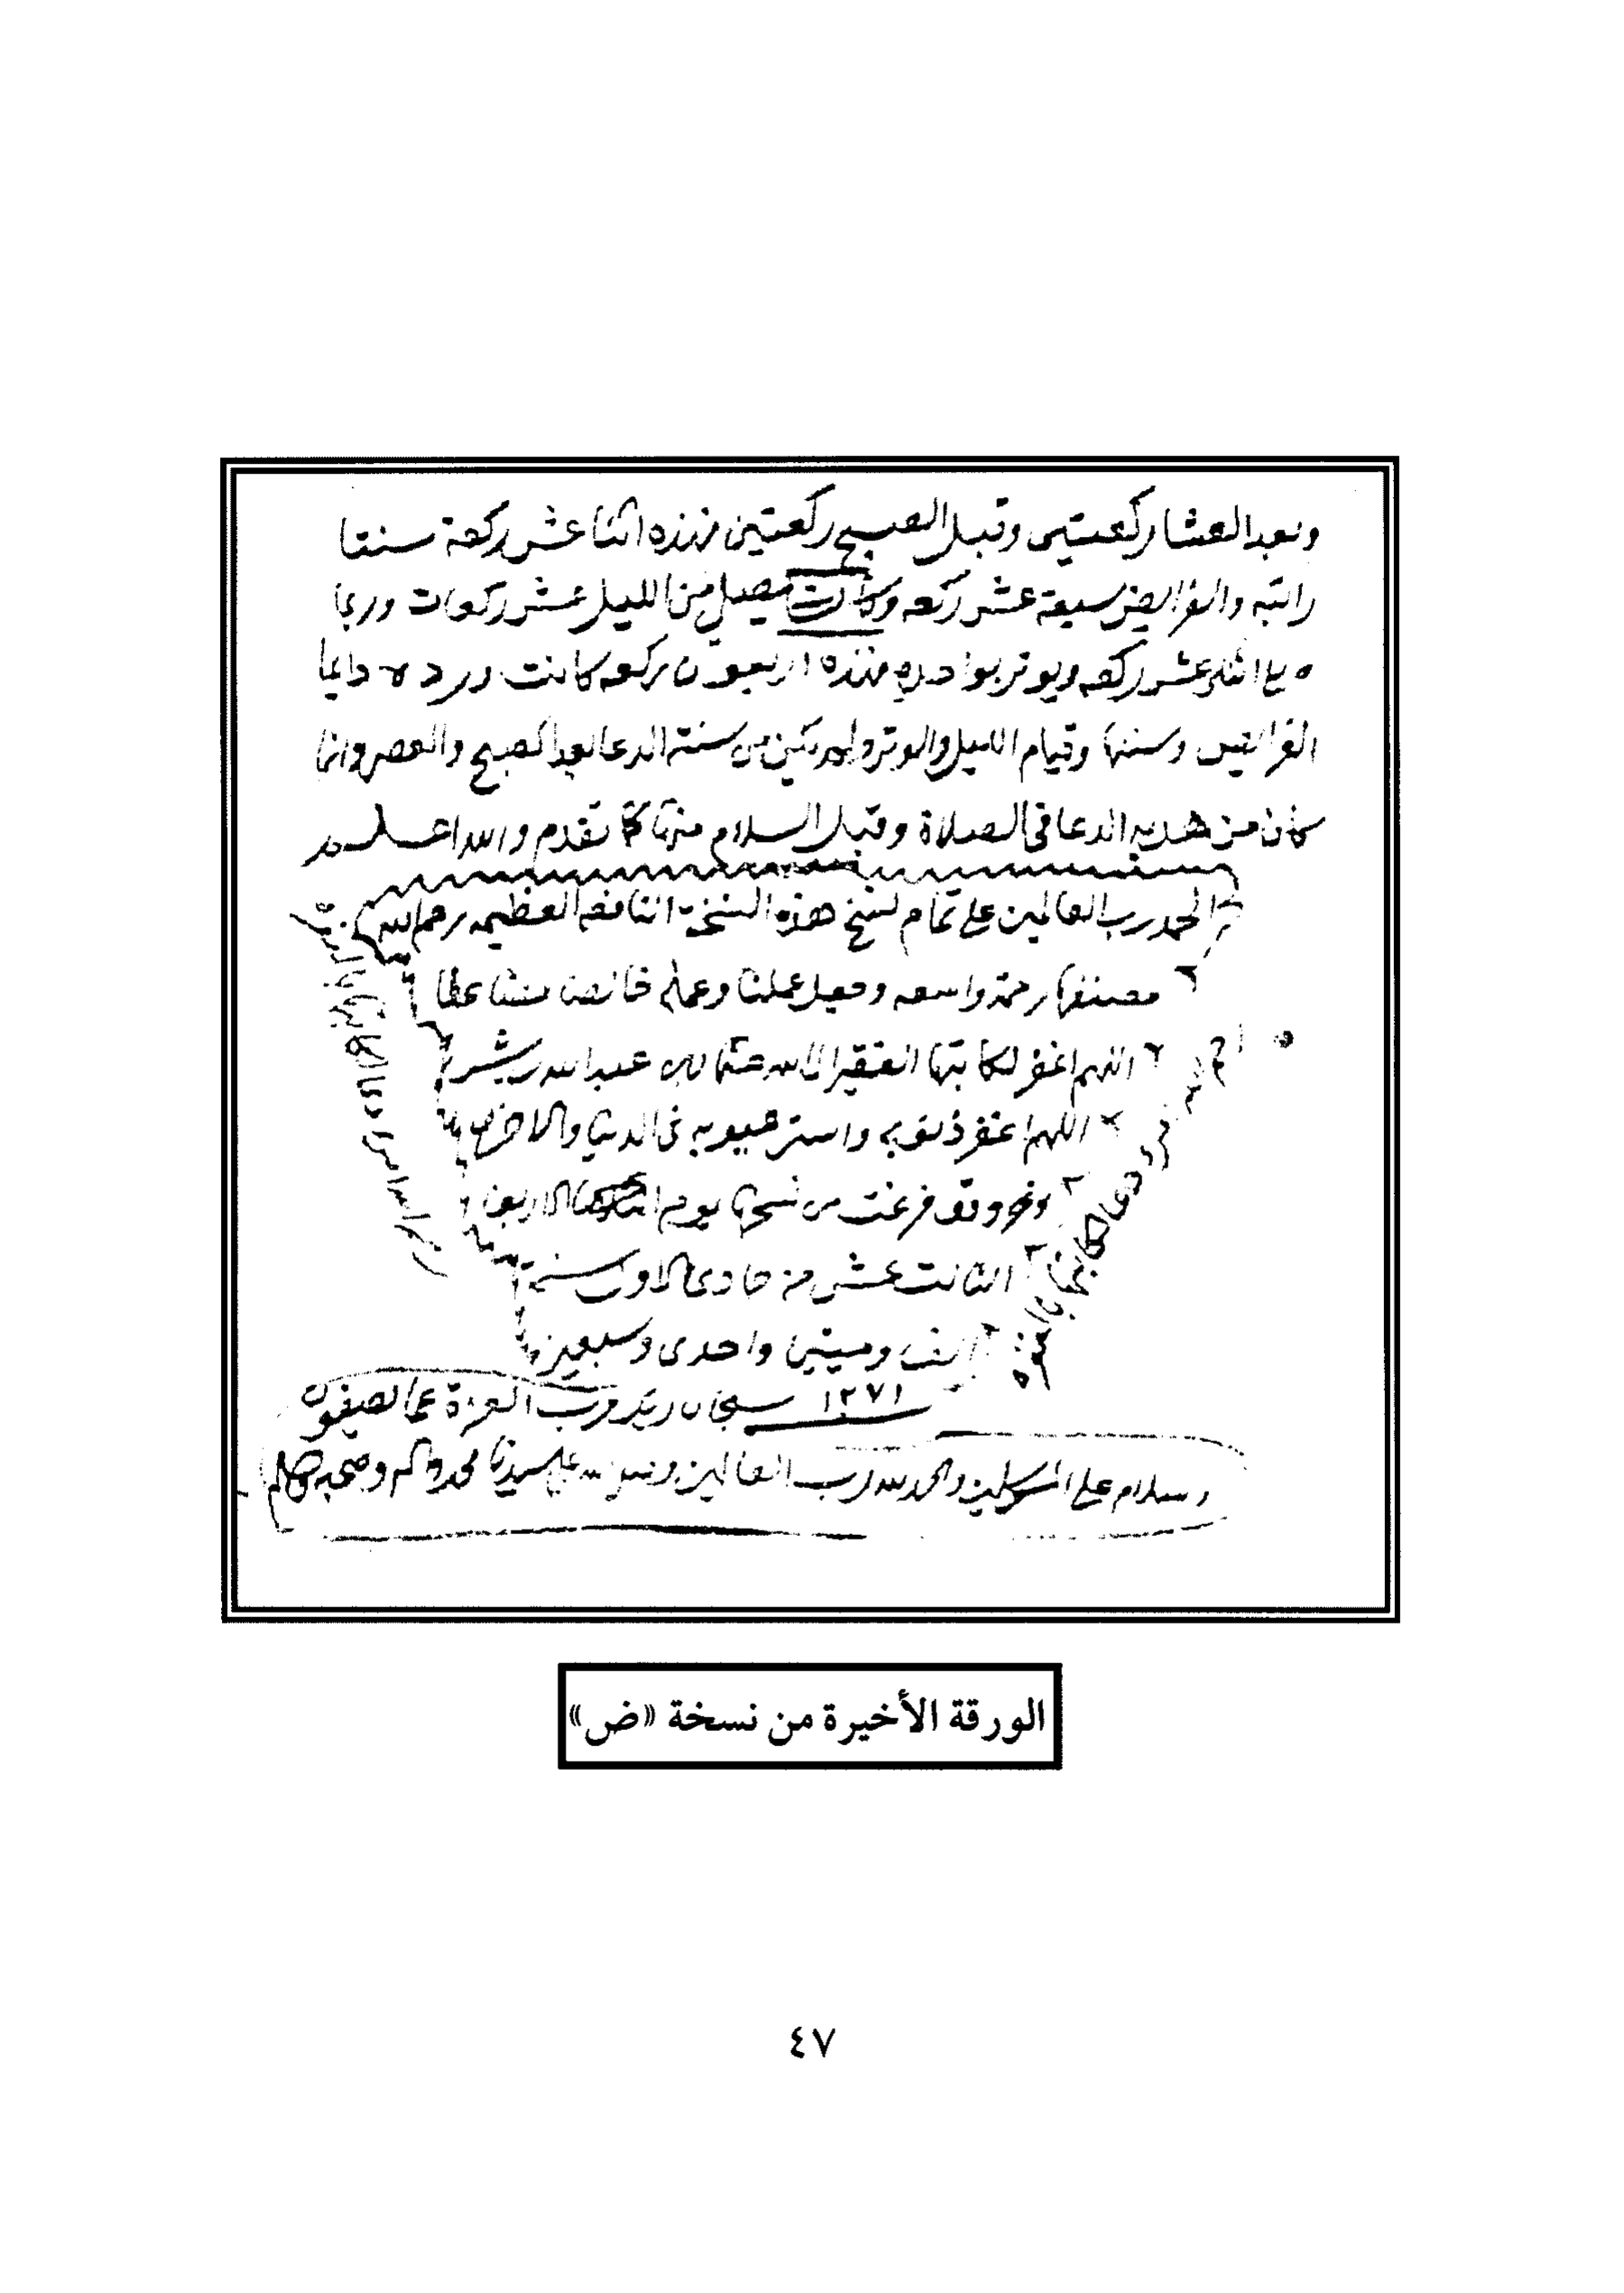 وبعد العشا ركعتين وقبل الصبح ركعتين فهذه اثنا عشر ركعة سنتا
راتبه والفرايض سبعة عشر ركعه وكانت يصلي من الليل عشر ركعات وربما
اثنى عشر ركعه ويوتر بواحده فهذه اربعون ركعه كانت ورده دايما
الفرائض وسننها وقيام الليل والوتر ولم يكن من سنته الدعا بعد الصبح والعصر وانما
كان من هديه الدعا في الصلاة وقبل السلام منها كما تقدم والله اعلم
الحمد رب العالمين على تمام نسخ هذه النسخة النافعه العظيمه رحم الله
مصنفها رحمة واسعه وجعل عملنا وعمله خالصا
اللهم اغفر لكاتبها الفقير الى الله عثمان بن عبد الله
اللهم اغفر ذنوبه واستر عيوبه في الدنيا والاخرة
وقد فرغت من نسخها يوم الاربعا
الثالث عشر من جمادى الاول سنة
الف وميتين واحدى وسبعين
١٢٧١ سبحان ربك رب العزة عما يصفون
وسلام على المرسلين والحمد لله رب العالمين وصلى الله على سيدنا محمد واله وصحبه وسلم
الورقة الأخيرة من نسخة «ض»
٤٧